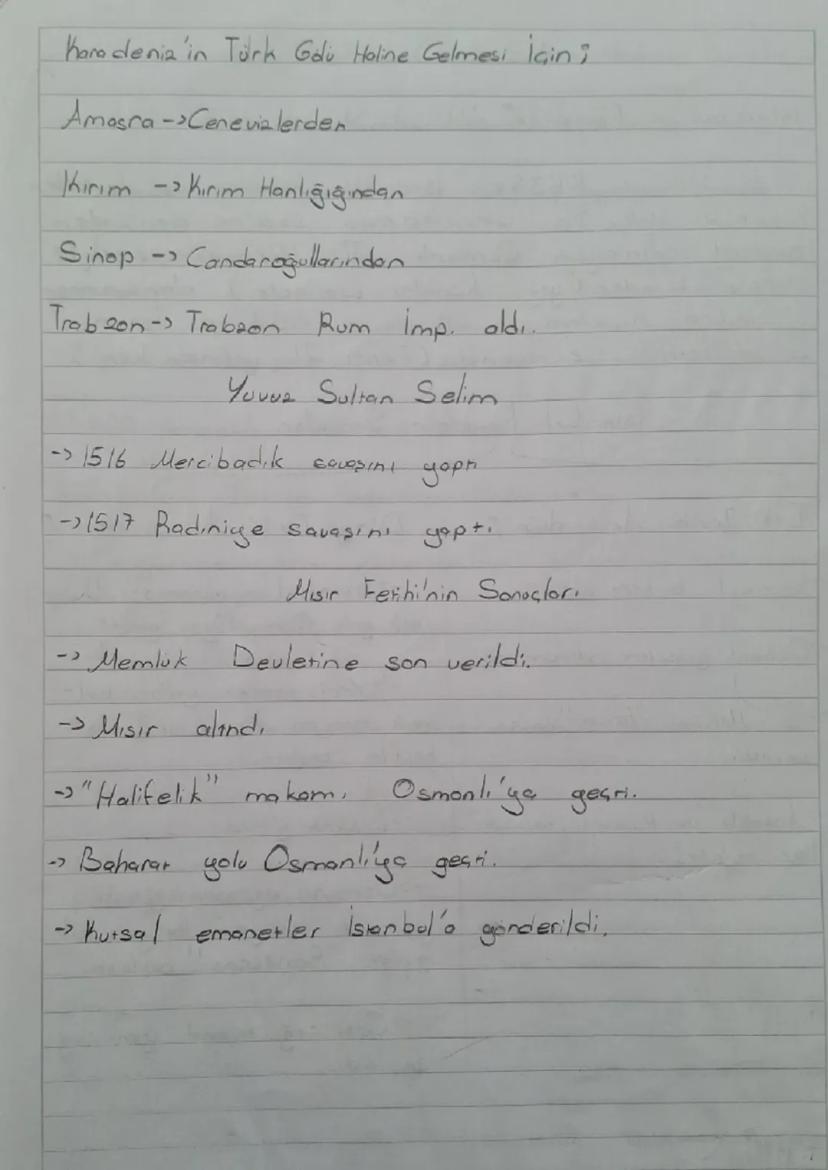 Karadeniz'in Türk Gölü Haline Gelmesi İçin;
Amasra -> Cenevizlerden
Kırım -> Kırım Hanlığığından
Sinop -> Candaroğullarından
Trabzon -> Trabzon Rum İmp. aldı.
Yavuz Sultan Selim
-> 1516 Mercibadık savaşını yaptı
-> 1517 Radiniye savaşını yaptı
Mısır Fethi'nin Sonuçları
-> Memlük Devletine son verildi.
-> Mısır alındı
-> "Halifelik" makamı Osmanlı'ya geçti.
-> Baharat yolu Osmanlı'ya geçti.
-> Kutsal emanetler İstanbul'a gönderildi.